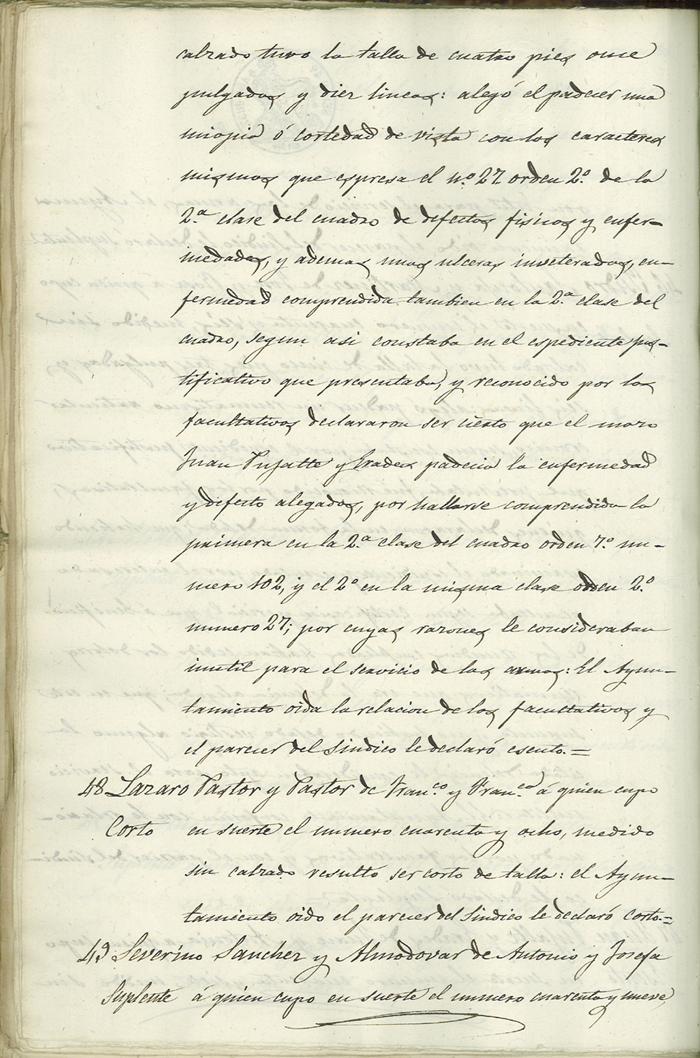 calzado tuvo la talla de cuatro pies once
pulgadas y diez lineas: alegó el padecer una
miopia ó cortedad de vista con los caracteres
mismos que espresa el nº 27 orden 2º de la
2ª clase del cuadro de defectos fisicos y enfer-
medades, y ademas unas ulceras inveteradas, en-
fermedad comprendida tambien en la 2ª clase del
cuadro, segun asi constaba en el espediente jus-
tificativo que presentaba, y reconocido por los
facultativos declararon ser cierto que el mozo
Juan Pujalte y Prades padecia la enfermedad
y defecto alegados, por hallarse comprendida la
primera en la 2ª clase del cuadro orden 7º nu-
mero 102, y el 2º en la misma clase orden 2º
numero 27; por cuyas razones le consideraban
inutil para el servicio de las armas: El Ayun-
tamiento oida la relacion de los facultativos y
el parecer del Sindico le declaró esento.=
48 Lazaro Pastor y Pastor de Fran.co y Fran.ca á quien cupo
Corto en suerte el numero cuarenta y ocho, medido
sin calzado resultó ser corto de talla: el Ayun-
tamiento oido el parecer del Sindico le declaró corto.=
49 Severino Sanchez y Almodovar de Antonio y Josefa
Suplente á quien cupo en suerte el numero cuarenta y nueve,